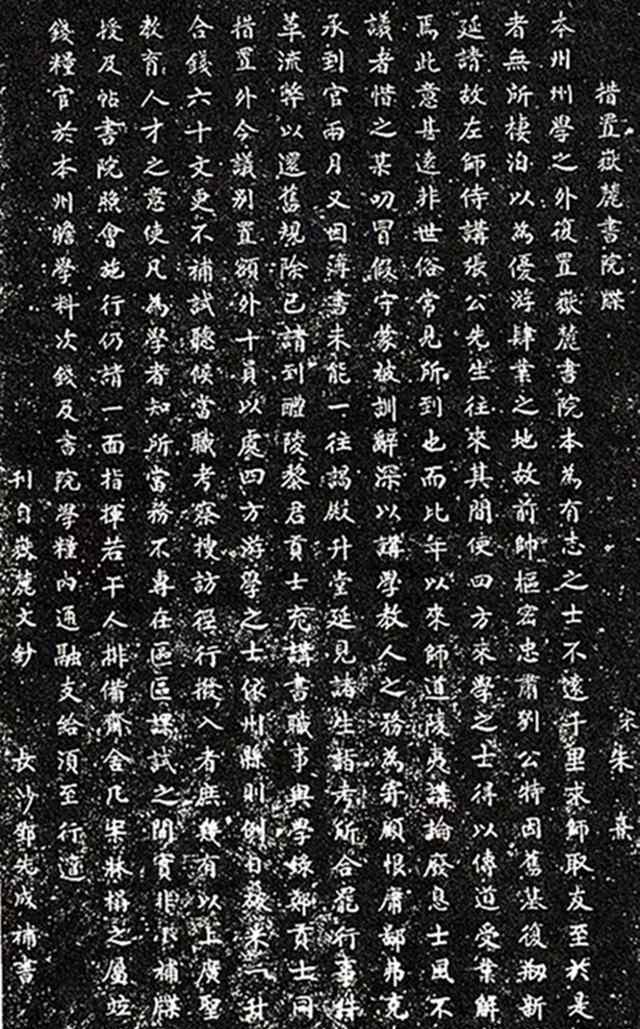 措置嶽麓書院牒
宋朱熹
本州州學之外復置嶽麓書院本為有志之士不遠千里求師取友至於是
者無所棲泊以為優游肆業之地故前帥樞密忠肅劉公特因舊基復刱新
延請故左師侍講張公先生往來其間使四方來學之士得以傳道受業解
焉此意甚遠非世俗常見所到也而比年以來師道陵夷講論廢息士氣不
議者惜之某叨冒假守蒙被訓辭深以講學教人之務為寄顧恨庸鄙弗克
承到官兩月又因簿書未能一往謁殿升堂延見諸生詣考所合罷行事件
革流弊以還舊規除已請到醴陵黎君貢士充講書職事與學錄鄭貢士同
措置外今議別置額外十員以處四方游學之士依州縣則例日破米一升
合錢六十文更不補試聽候當職考察搜訪徑行撥入者庶幾有以上廣聖
教育人才之意使凡為學者知所當務不專在區區課試之間實非小補牒
授及帖書院照會施行仍請一面指揮若干人排備齋舍几案牀榻之屬並
錢糧官於本州贍學料次錢及書院學糧內通融支給須至行遣
刊自嶽麓文鈔 長沙鄧先成補書